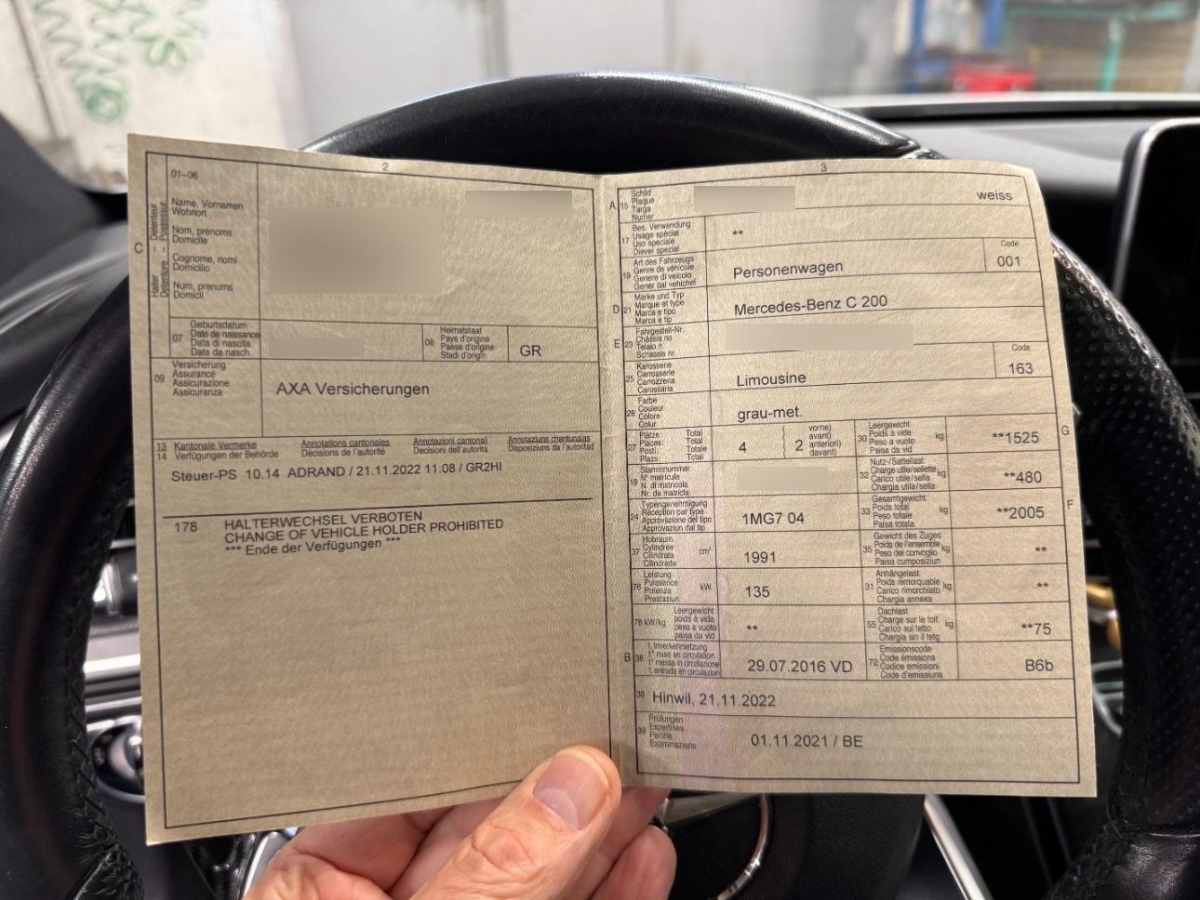 2
01-06
C
Halter - Detenteur
Detentore - Possessur
Name, Vornamen
Wohnort
Nom, prénoms
Domicile
Cognome, nomi
Domicilio
Num, prenums
Domicil
07
Geburtsdatum
Date de naissance
Data di nascita
Data da nasch.
08
Heimatstaat
Pays d'origine
Paese d'origine
Stadi d'origin
GR
09
Versicherung
Assurance
Assicurazione
Assicuranza
AXA Versicherungen
13 Kantonale Vermerke
14 Verfügungen der Behörde
Annotations cantonales
Décisions de l'autorité
Annotazioni cantonali
Decisioni dell'autorità
Annotaziuns chantunalas
Disposiziuns da l'autoritad
Steuer-PS 10.14 ADRAND / 21.11.2022 11:08 / GR2HI
178 HALTERWECHSEL VERBOTEN
CHANGE OF VEHICLE HOLDER PROHIBITED
*** Ende der Verfügungen ***
3
A 15
Schild
Plaque
Targa
Numer
weiss
17
Bes. Verwendung
Usage spécial
Uso speciale
Diever spezial
**
19
Art des Fahrzeugs
Genre de véhicule
Genere di veicolo
Gener dal vehichel
Personenwagen
Code
001
D 21
Marke und Typ
Marque et type
Marca e tipo
Marca e tip
Mercedes-Benz C 200
E 23
Fahrgestell-Nr.
Châssis no
Telaio n.
Schassis nr.
25
Karosserie
Carrosserie
Carrozzeria
Carossaria
Limousine
Code
163
26
Farbe
Couleur
Colore
Colur
grau-met.
27
Plätze Total
Places: Total
Posti: Totale
Plazs: Total
4
2
vorne)
avant)
anteriori)
davant)
30
Leergewicht
Poids à vide
Peso a vuoto
Paisa da vid
kg
**1525
G
18
Stammnummer
N° matricule
N. di matricola
Nr. da matricla
32
Nutz-/Sattellast
Charge utile/sellette
Carico utile/sella
Chargia utila/sella
kg
**480
24
Typengenehmigung
Réception par type
Approvazione del tipo
Approvaziun dal tip
1MG7 04
33
Gesamtgewicht
Poids total
Peso totale
Paisa totala
kg
**2005
F
37
Hubraum
Cylindrée
Cilindrata
Cilindrada
cm³
1991
35
Gewicht des Zuges
Poids de l'ensemble
Peso del convoglio
Paisa cumposiziun
kg
**
76
Leistung
Puissance
Potenza
Prestaziun
kW
135
31
Anhängelast
Poids remorquable
Carico rimorchiato
Chargia annexa
kg
**
78 kW/kg
Leergewicht
poids à vide
peso a vuoto
paisa da vid
**
55
Dachlast
Charge sur le toit
Carico sul tetto
Chargia sin il tetg
kg
**75
B 36
1. Inverkehrsetzung
1re mise en circulation
1a messa in circolazione
1. entrada en circulaziun
29.07.2016 VD
72
Emissionscode
Code émissions
Codice emissioni
Code d'emissiuns
B6b
38
Hinwil, 21.11.2022
39
Prüfungen
Expertises
Perizie
Examinaziuns
01.11.2021 / BE